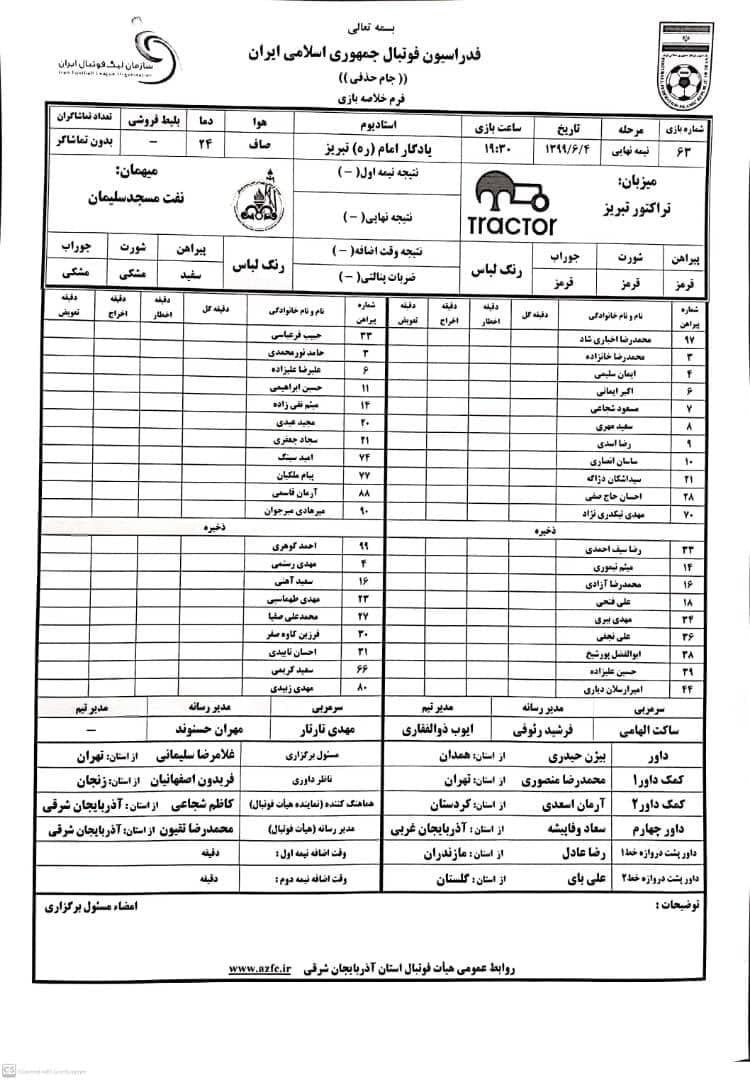 بسمه تعالی
فدراسیون فوتبال جمهوری اسلامی ایران
((جام حذفی))
فرم خلاصه بازی
سازمان لیگ فوتبال ایران
Iran Football League Organization
شماره بازی مرحله تاریخ ساعت بازی استادیوم هوا دما بلیط فروشی تعداد تماشاگران
۶۳ نیمه نهایی ۱۳۹۹/۶/۴ ۱۹:۳۰ یادگار امام (ره) تبریز صاف ۲۴ – بدون تماشاگر
میزبان:
تراکتور تبریز
TRACTOR
نتیجه نیمه اول: (–)
نتیجه نهایی: (–)
نتیجه وقت اضافه (–)
ضربات پنالتی: (–)
میهمان:
نفت مسجدسلیمان
پیراهن شورت جوراب رنگ لباس
قرمز قرمز قرمز
رنگ لباس پیراهن شورت جوراب
سفید مشکی مشکی
شماره پیراهن نام و نام خانوادگی دقیقه گل دقیقه اخطار دقیقه اخراج دقیقه تعویض
۹۷ محمدرضا اخباری شاد
۳ محمدرضا خانزاده
۴ ایمان سلیمی
۶ اکبر ایمانی
۷ مسعود شجاعی
۸ سعید مهری
۹ رضا اسدی
۱۰ ساسان انصاری
۲۱ سیداشکان دژاگه
۲۸ احسان حاج صفی
۷۰ مهدی تیکدری نژاد
ذخیره
۳۳ رضا سیف احمدی
۱۴ میثم تیموری
۱۶ محمدرضا آزادی
۱۸ علی فتحی
۳۴ مهدی ببری
۳۶ علی نجفی
۳۸ ابوالفضل پورشیخ
۳۹ حسین علیزاده
۴۴ امیرارسلان دیاری
شماره پیراهن نام و نام خانوادگی دقیقه گل دقیقه اخطار دقیقه اخراج دقیقه تعویض
۳۳ حبیب فرعباسی
۳ حامد نورمحمدی
۶ علیرضا علیزاده
۱۱ حسین ابراهیمی
۱۴ میثم نقی زاده
۲۰ مجید عیدی
۲۱ سجاد جعفری
۷۴ امید سینگ
۷۷ پیام ملکیان
۸۸ آرمان قاسمی
۹۰ میرهادی میرجوان
ذخیره
۹۹ احمد گوهری
۴ مهدی رستمی
۱۶ سعید آهنی
۲۳ مهدی طهماسبی
۲۷ محمدعلی صفیا
۳۰ فرزین کاوه صفر
۳۱ احسان تاییدی
۶۶ سعید کریمی
۸۰ مهدی زبیدی
سرمربی مدیر رسانه مدیر تیم سرمربی مدیر رسانه مدیر تیم
ساکت الهامی فرشید رئوفی ایوب ذوالفقاری مهدی تارتار مهران حسنوند –
داور بیژن حیدری از استان: همدان
کمک داور۱ محمدرضا منصوری از استان: تهران
کمک داور۲ آرمان اسعدی از استان: کردستان
داور چهارم سعاد وفاپیشه از استان: آذربایجان غربی
داور پشت دروازه خط۱ رضا عادل از استان: مازندران
داور پشت دروازه خط۲ علی بای از استان: گلستان
مسئول برگزاری غلامرضا سلیمانی از استان: تهران
ناظر داوری فریدون اصفهانیان از استان: زنجان
هماهنگ کننده (نماینده هیأت فوتبال) کاظم شجاعی از استان: آذربایجان شرقی
مدیر رسانه (هیأت فوتبال) محمدرضا تقیون از استان: آذربایجان شرقی
وقت اضافه نیمه اول: دقیقه
وقت اضافه نیمه دوم: دقیقه
توضیحات: امضاء مسئول برگزاری
روابط عمومی هیأت فوتبال استان آذربایجان شرقی www.azfc.ir
CS